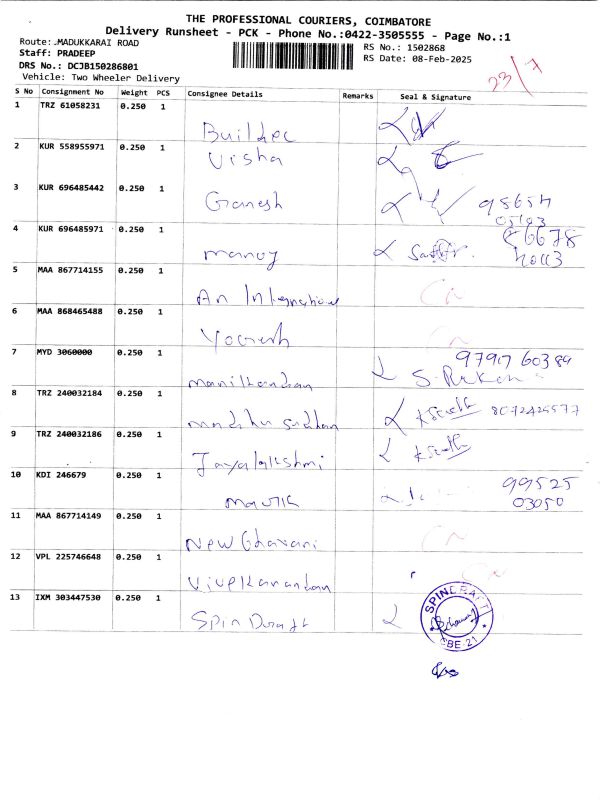 THE PROFESSIONAL COURIERS, COIMBATORE
Delivery Runsheet - PCK - Phone No.:0422-3505555 - Page No.:1
Route: MADUKKARAI ROAD
RS No.: 1502868
Staff: PRADEEP
RS Date: 08-Feb-2025
DRS No.: DCJB150286801
Vehicle: Two Wheeler Delivery
23/7
S No Consignment No Weight PCS Consignee Details Remarks Seal & Signature
1 TRZ 61058231 0.250 1
Buildec
2 KUR 558955971 0.250 1
Visha
3 KUR 696485442 0.250 1
Ganesh
4 KUR 696485971 0.250 1
manoj
5 MAA 867714155 0.250 1
An International
6 MAA 868465488 0.250 1
Yogesh
7 MYD 3060000 0.250 1
manikandan
8 TRZ 240032184 0.250 1
madhu sudhan
8072426577
9 TRZ 240032186 0.250 1
Jayalakshmi
10 KDI 246679 0.250 1
99525
03050
11 MAA 867714149 0.250 1
New Bhavani
12 VPL 225746648 0.250 1
Vivekanandan
13 IXM 303447530 0.250 1
SPINCRAFT
CBE-21